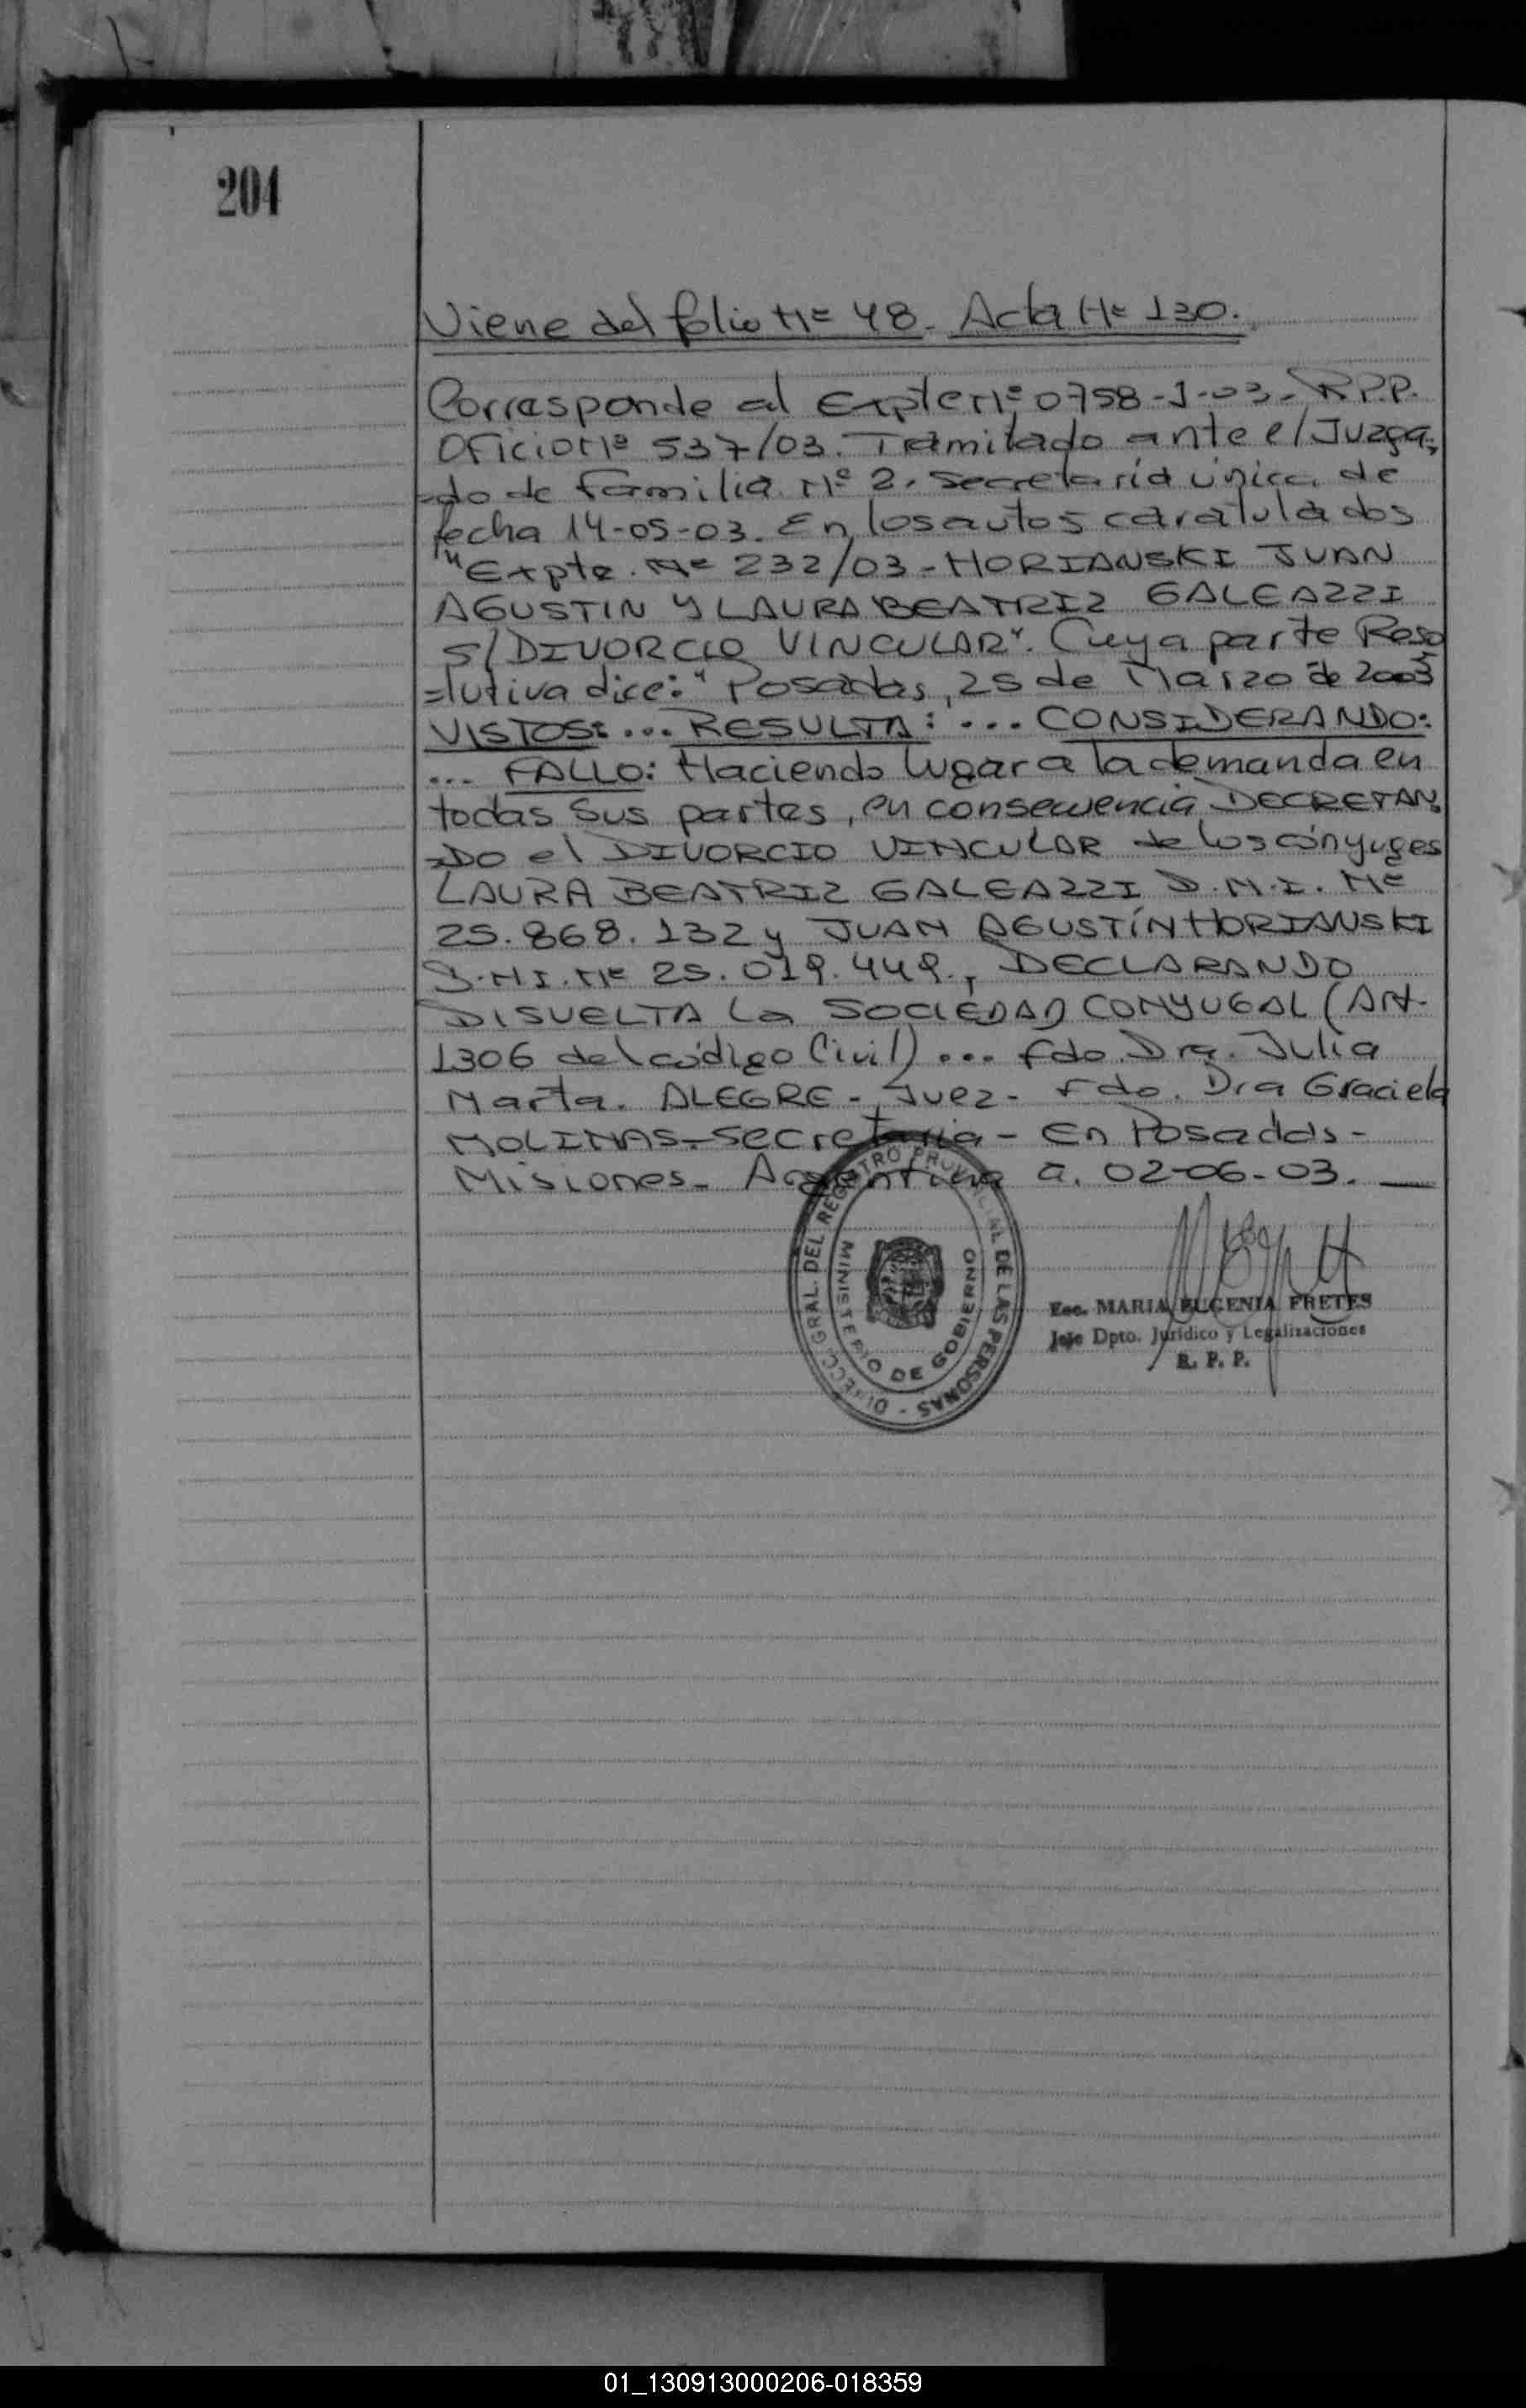 204
Viene del folio Nº 48. Acta Nº 130.
Corresponde al Expte Nº 0758-J-03. R.P.P.
Oficio Nº 537/03. Tramitado ante el Juzga=
=do de familia Nº 2. secretaría única de
fecha 14-05-03. En los autos caratulados
"Expte. Nº 232/03 - HORIANSKI JUAN
AGUSTIN Y LAURA BEATRIZ GALEAZZI
S/DIVORCIO VINCULAR". Cuya parte Reso
=lutiva dice: "Posadas, 25 de Marzo de 2003
VISTOS: ... RESULTA: ... CONSIDERANDO:
... FALLO: Haciendo lugar a la demanda en
todas sus partes, en consecuencia DECRETAN=
=DO el DIVORCIO VINCULAR de los cónyuges
LAURA BEATRIZ GALEAZZI D.N.I. Nº
25.868.132 y JUAN AGUSTÍN HORIANSKI
D.N.I. Nº 25.019.449., DECLARANDO
DISUELTA la SOCIEDAD CONYUGAL (Art.
1306 del código Civil) ... fdo. Dra. Julia
Marta. ALEGRE - Juez - fdo. Dra Graciela
MOLINAS - Secretaria - En Posadas -
Misiones - Argentina a. 02-06-03.
DIRECC. GRAL. DEL REGISTRO PROVINCIAL DE LAS PERSONAS -
MINISTERIO DE GOBIERNO
Esc. MARIA EUGENIA FRETES
Jefe Dpto. Jurídico y Legalizaciones
R. P. P.
01_130913000206-018359